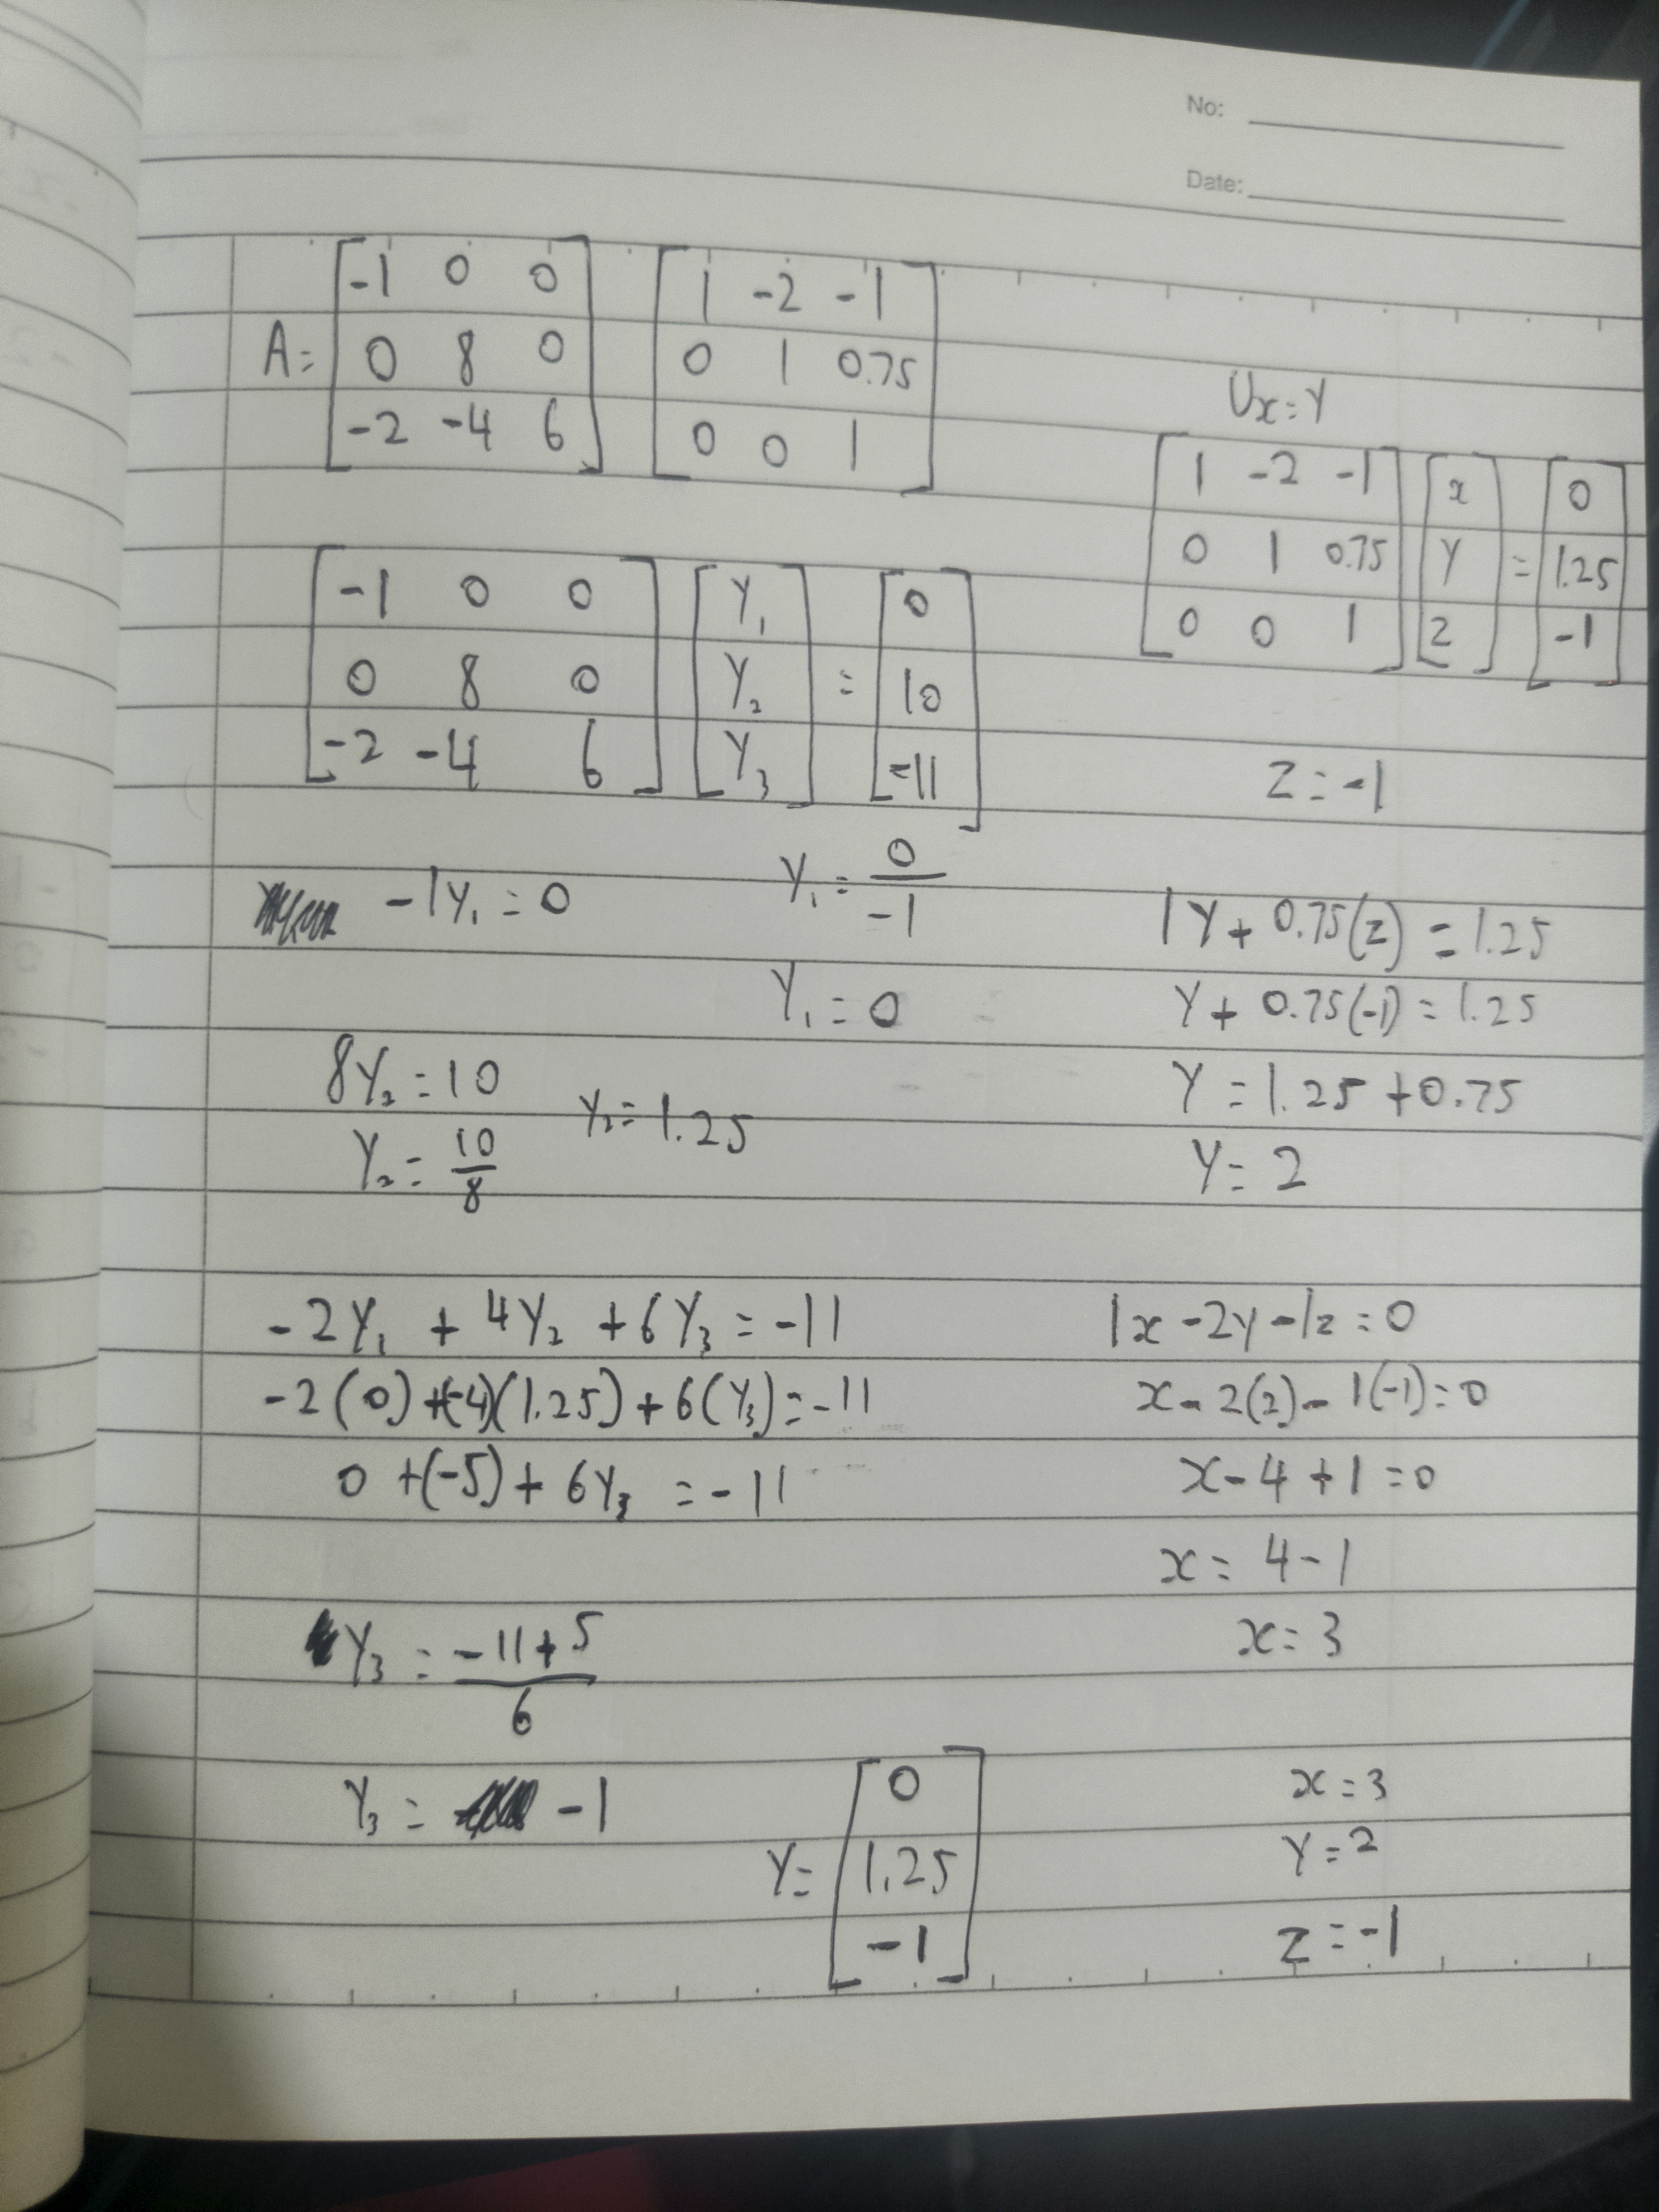 No:
Date:
A = [ -1 0 0 ] [ 1 -2 -1 ]
[ 0 8 0 ] [ 0 1 0.75 ]
[ -2 -4 6 ] [ 0 0 1 ]
[ -1 0 0 ] [ Y₁ ] = [ 0 ]
[ 0 8 0 ] [ Y₂ ] = [ 10 ]
[ -2 -4 6 ] [ Y₃ ] = [ -11 ]
-1Y₁ = 0
Y₁ = 0/-1
Y₁ = 0
8Y₂ = 10
Y₂ = 10/8
Y₂ = 1.25
-2Y₁ + 4Y₂ + 6Y₃ = -11
-2(0) +(-4)(1.25) + 6(Y₃) = -11
0 +(-5) + 6Y₃ = -11
Y₃ = -11+5/6
Y₃ = -1
Y = [ 0 ]
[ 1.25 ]
[ -1 ]
Ux = Y
[ 1 -2 -1 ] [ x ] = [ 0 ]
[ 0 1 0.75 ] [ Y ] = [ 1.25 ]
[ 0 0 1 ] [ z ] = [ -1 ]
z = -1
1Y + 0.75(z) = 1.25
Y + 0.75(-1) = 1.25
Y = 1.25 + 0.75
Y = 2
1x - 2y - 1z = 0
x - 2(2) - 1(-1) = 0
x - 4 + 1 = 0
x = 4 - 1
x = 3
x = 3
Y = 2
z = -1